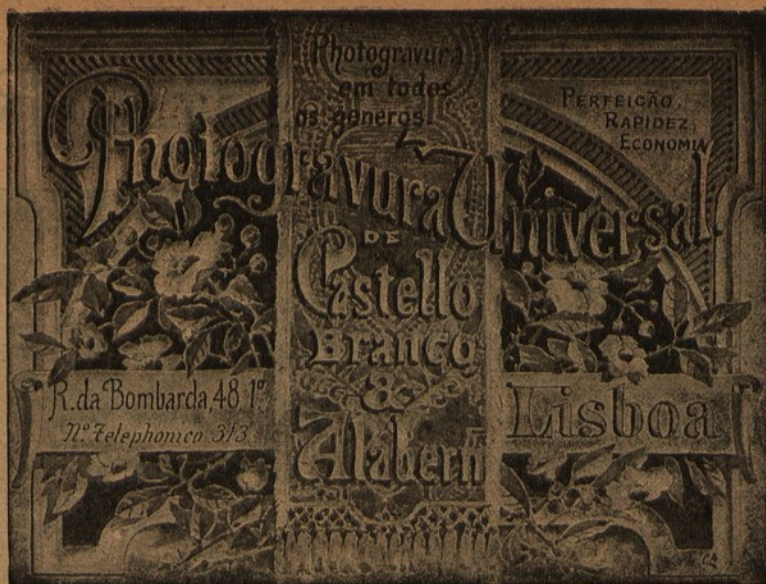 Photogravura
em todos
os generos.
PERFEIÇÃO,
RAPIDEZ,
ECONOMIA
Photogravura Universal.
DE
Castello
Branco
&
Alabern
R. da Bombarda, 48, 1º
Nº Telephonico 313
Lisboa